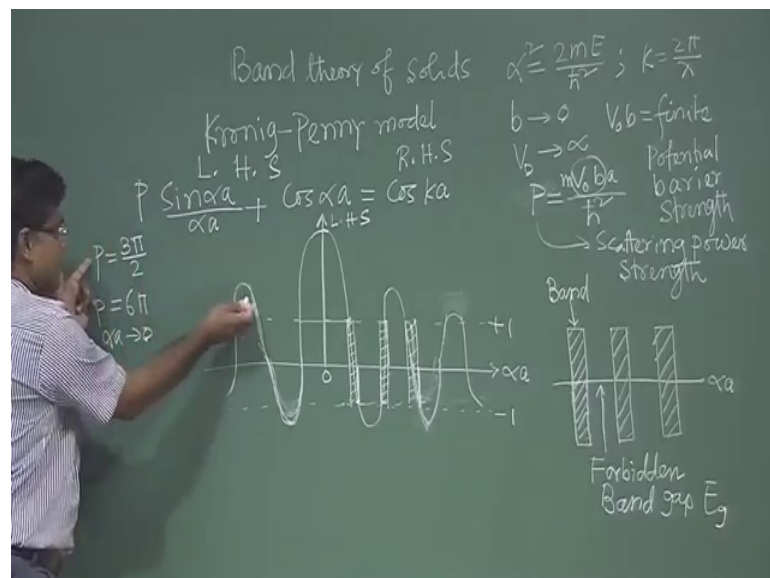 Band theory of solids α² = 2mE/ħ² ; K = 2π/λ
Kronig-Penny model
b → 0 V₀b = finite
V₀ → ∝
L. H. S R. H. S
P Sinαa/αa + Cos αa = Cos Ka
P = mV₀ba/ħ²
Potential
barrier
Strength
Scattering power
Strength
P = 3π/2
P = 6π
αa → 0
L.H.S
+1
0
αa
-1
Band
αa
Forbidden
Band gap Eg